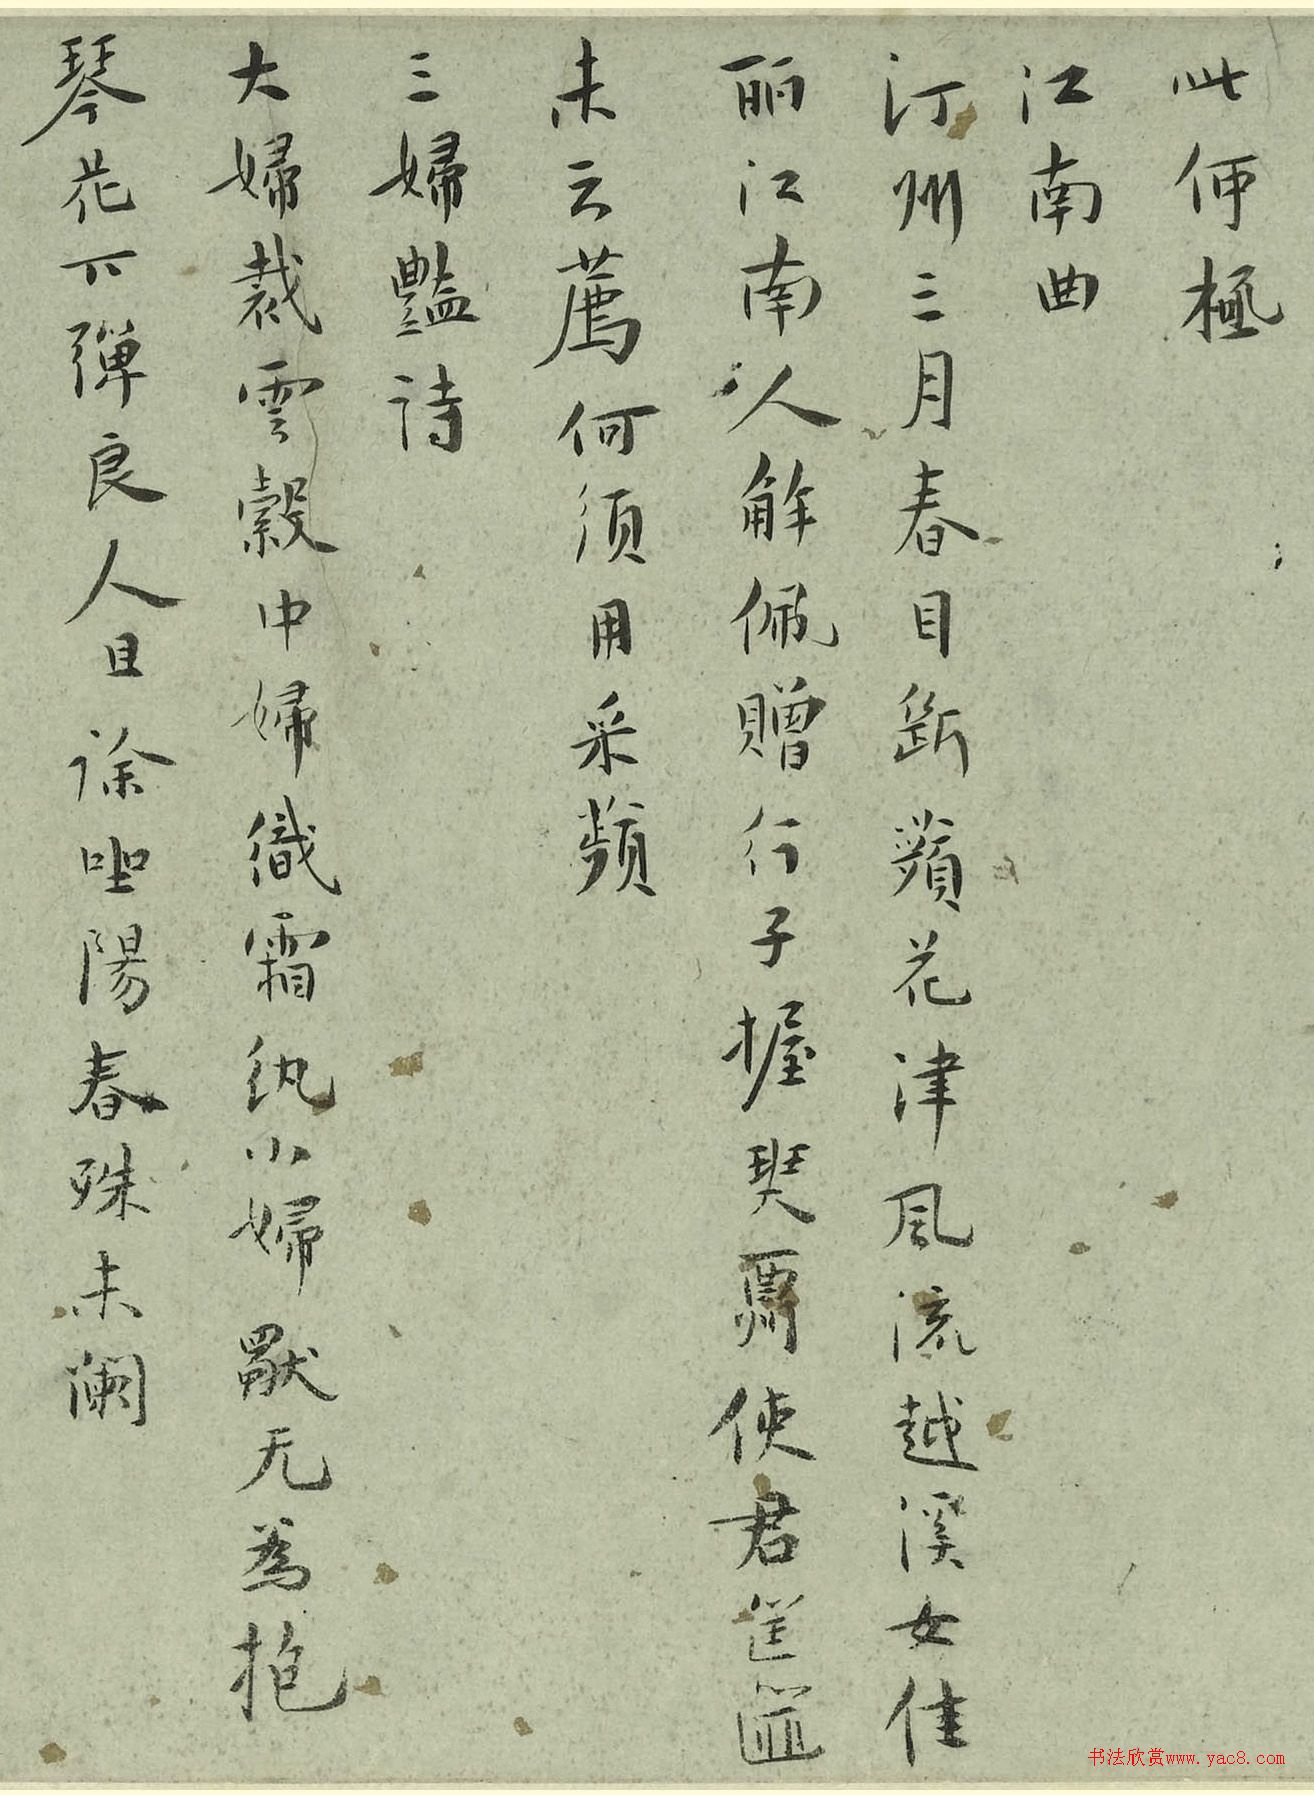 此何極
江南曲
汀州三月春目斷蘋花津風流越溪女佳
丽江南人解佩贈行子握琴要使君筐篚
未云薦何須用采蘋
三婦豔詩
大婦裁雲縠中婦織霜紈小婦獸无為抱
琴花下彈良人且徐坐陽春殊未闌
书法欣赏www.yac8.com